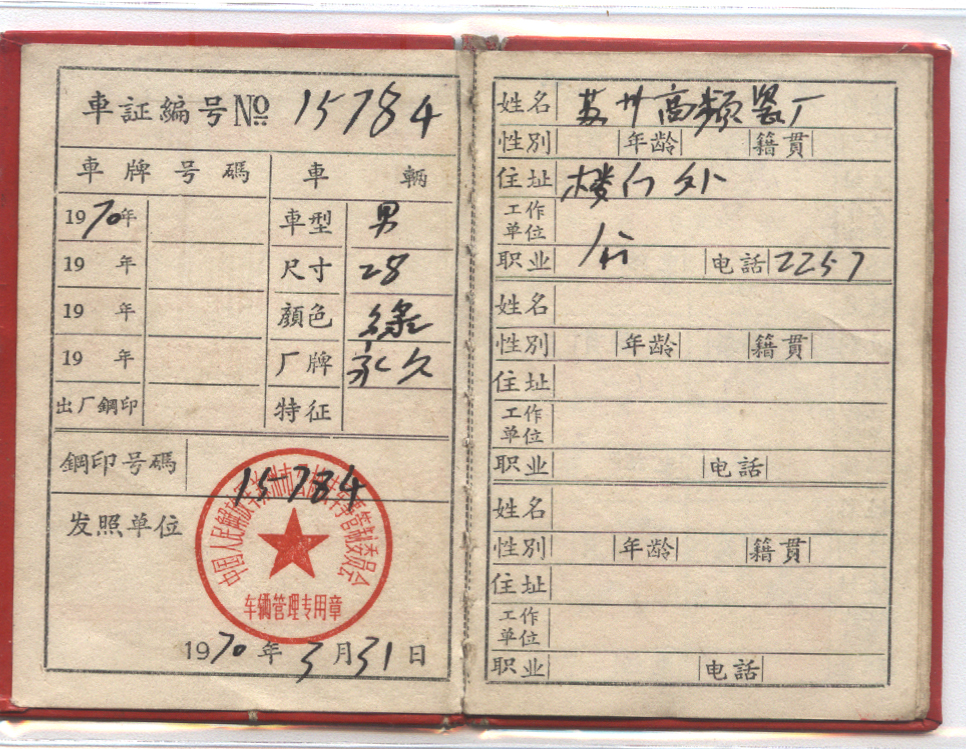 車証編号№ 15784
車牌号碼 車輌
1970年 車型 男
19 年 尺寸 28
19 年 顔色 綠
19 年 厂牌 永久
出厂鋼印 特征
鋼印号碼 15784
发照单位
车辆管理专用章
1970年3月31日
姓名 苏州高频瓷厂
性別 年龄 籍貫
住址 楼门外
工作单位
职业 电話 2257
姓名
性別 年龄 籍貫
住址
工作单位
职业 电話
姓名
性別 年龄 籍貫
住址
工作单位
职业 电話